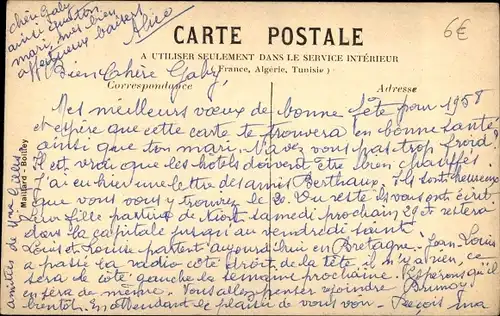 CARTE POSTALE
6€
A UTILISER SEULEMENT DANS LE SERVICE INTÉRIEUR
( France, Algérie, Tunisie )
Correspondance
Adresse
Bien chère Gaby,
Mes meilleurs vœux de bonne fête pour 1958
et espère que cette carte te trouvera en bonne santé
ainsi que ton mari. N'avez vous pas trop froid?
Il est vrai que les hôtels doivent être bien chauffés
J'ai eu hier une lettre des amis Berthaux. Ils sont heureux
que vous vous y trouviez le 20. Du reste ils vous ont écrit.
Leur fille partira de Niort samedi prochain 29 et restera
dans la capitale jusqu'au vendredi saint
Louis et Louise partent aujourd'hui en Bretagne. Jean-Louis
a passé la radio côté droit de la tête, il n'y a rien, ce
sera le côté gauche la semaine prochaine. Espérons qu'il
en sera de même. Vous allez penser rejoindre Brunoy
bientôt. En attendant le plaisir de vous voir. Reçois ma
chère Gaby
ainsi que ton
mari, mes bien
affectueux baisers
Alice
amitiés de Mme Gilles
Maillard - Bouley